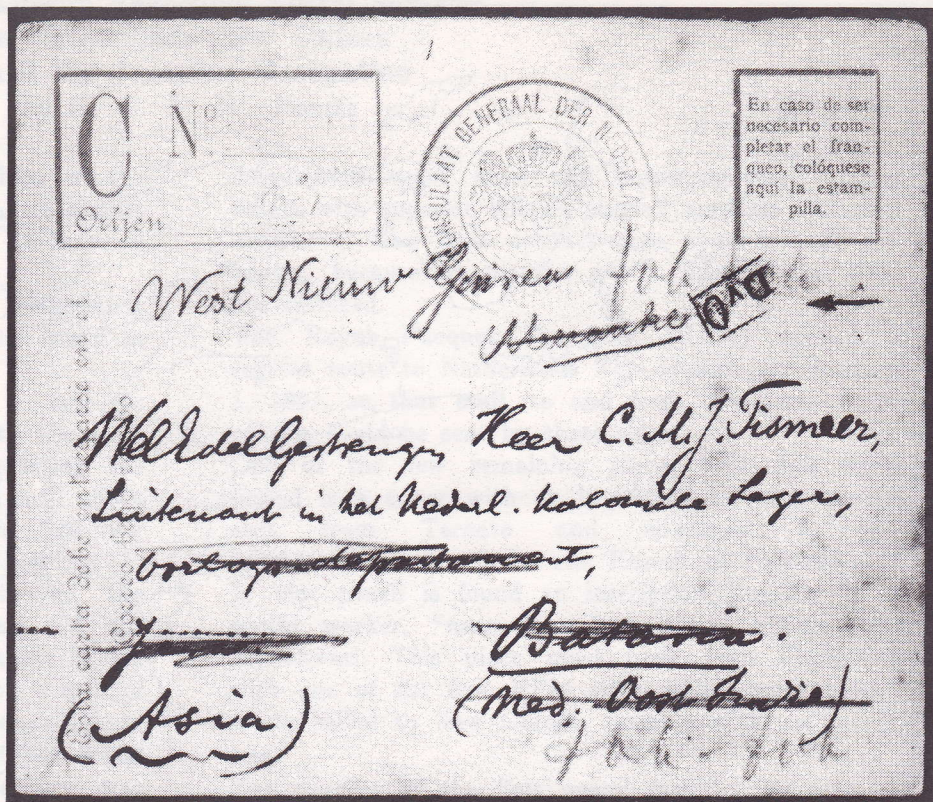 C Nº
Orijen
Nº 1
CONSULAAT GENERAAL DER NEDERLAN
En caso de ser
necesario com-
pletar el fran-
queo, colóquese
aquí la estam-
pilla.
West Nieuw Guinea
fak fak
Merauke
DVO
WelEdelGestrenge Heer C. M. J. Tismeer,
Luitenant in het Nederl. Koloniale Leger,
Oorlogsdepartement,
Java
Batavia.
(Asia.)
(Ned. Oost Indie)
fak-fak
Esta carta debe entregarse en el
Correo